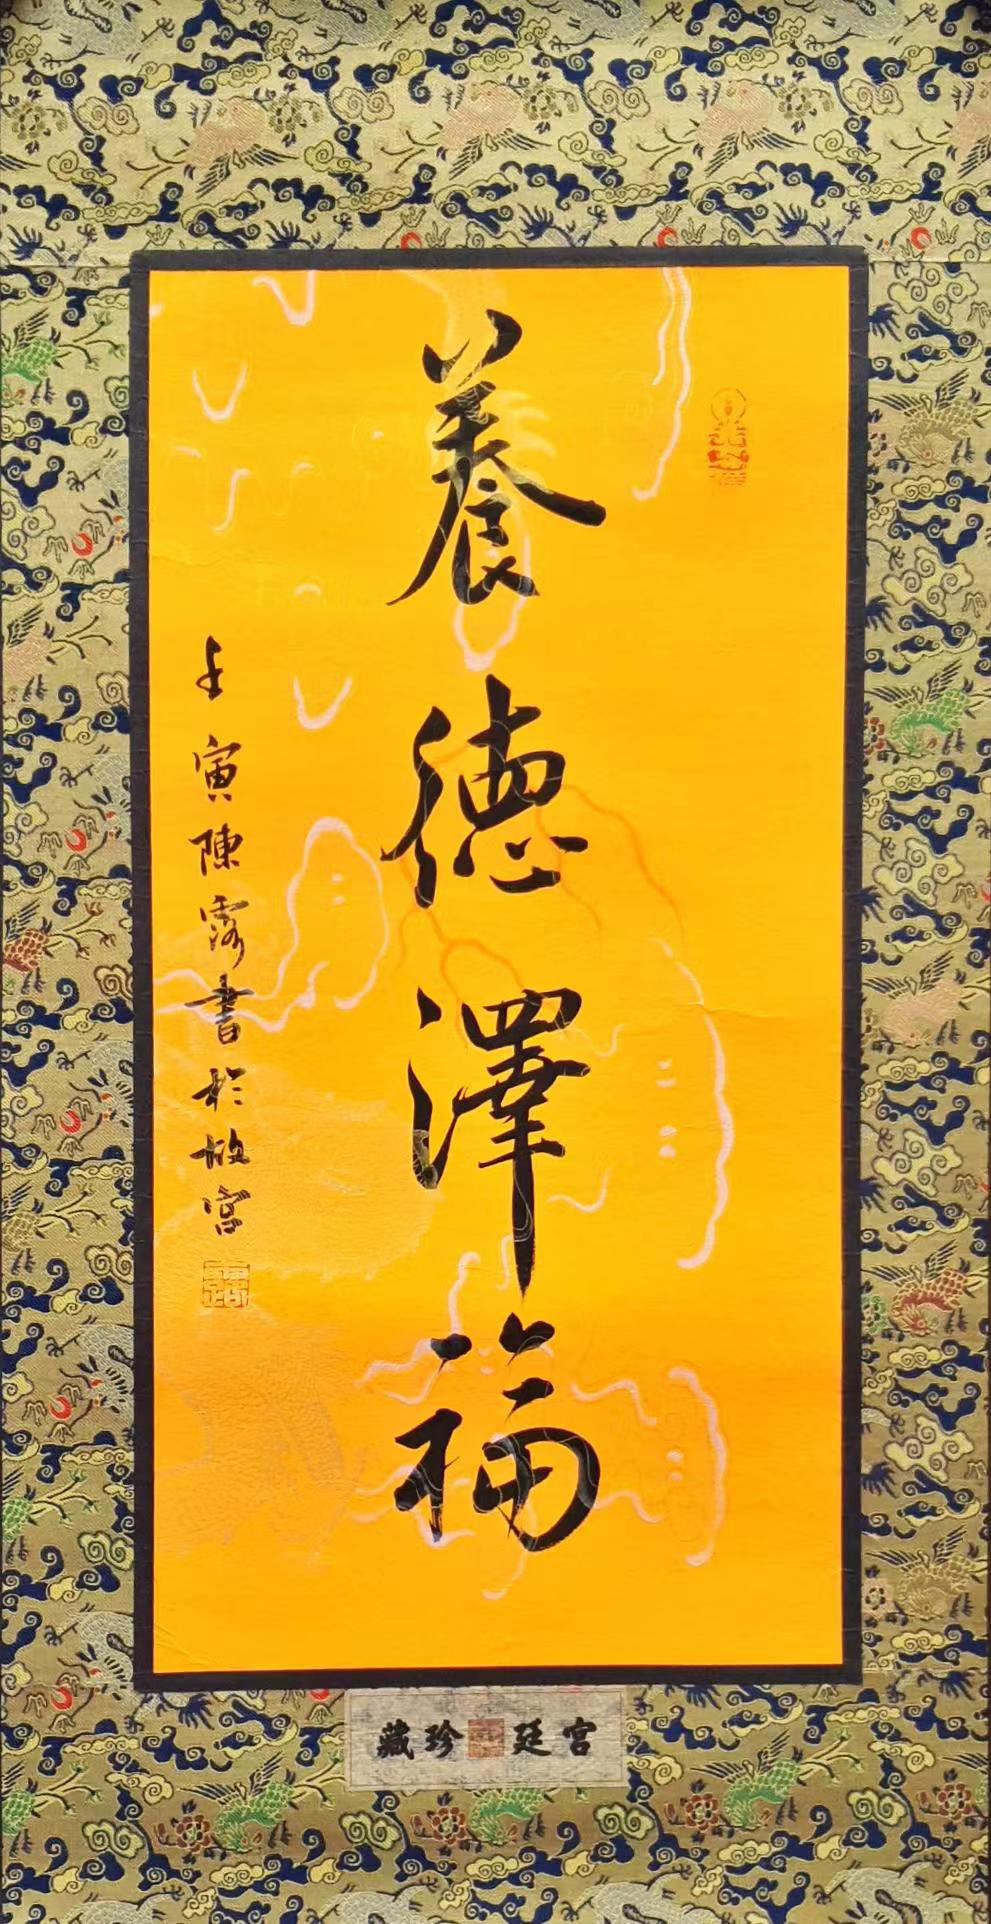 養德澤福
壬寅陳露書於故宮
宮廷珍藏